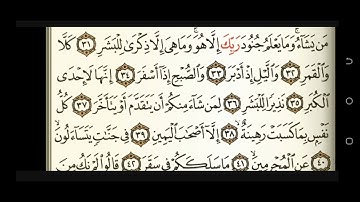 مَن يَشَآءُ ۚ وَمَا يَعْلَمُ جُنُودَ رَبِّكَ إِلَّا هُوَ ۚ وَمَا هِىَ إِلَّا ذِكْرَىٰ لِلْبَشَرِ ٣١ كَلَّا
وَٱلْقَمَرِ ٣٢ وَٱلَّيْلِ إِذْ أَدْبَرَ ٣٣ وَٱلصُّبْحِ إِذَآ أَسْفَرَ ٣٤ إِنَّهَا لَإِحْدَى
ٱلْكُبَرِ ٣٥ نَذِيرًا لِّلْبَشَرِ ٣٦ لِمَن شَآءَ مِنكُمْ أَن يَتَقَدَّمَ أَوْ يَتَأَخَّرَ ٣٧ كُلُّ
نَفْسٍۭ بِمَا كَسَبَتْ رَهِينَةٌ ٣٨ إِلَّآ أَصْحَٰبَ ٱلْيَمِينِ ٣٩ فِى جَنَّٰتٍ يَتَسَآءَلُونَ
٤٠ عَنِ ٱلْمُجْرِمِينَ ٤١ مَا سَلَكَكُمْ فِى سَقَرَ ٤٢ قَالُوا۟ لَمْ نَكُ مِنَ